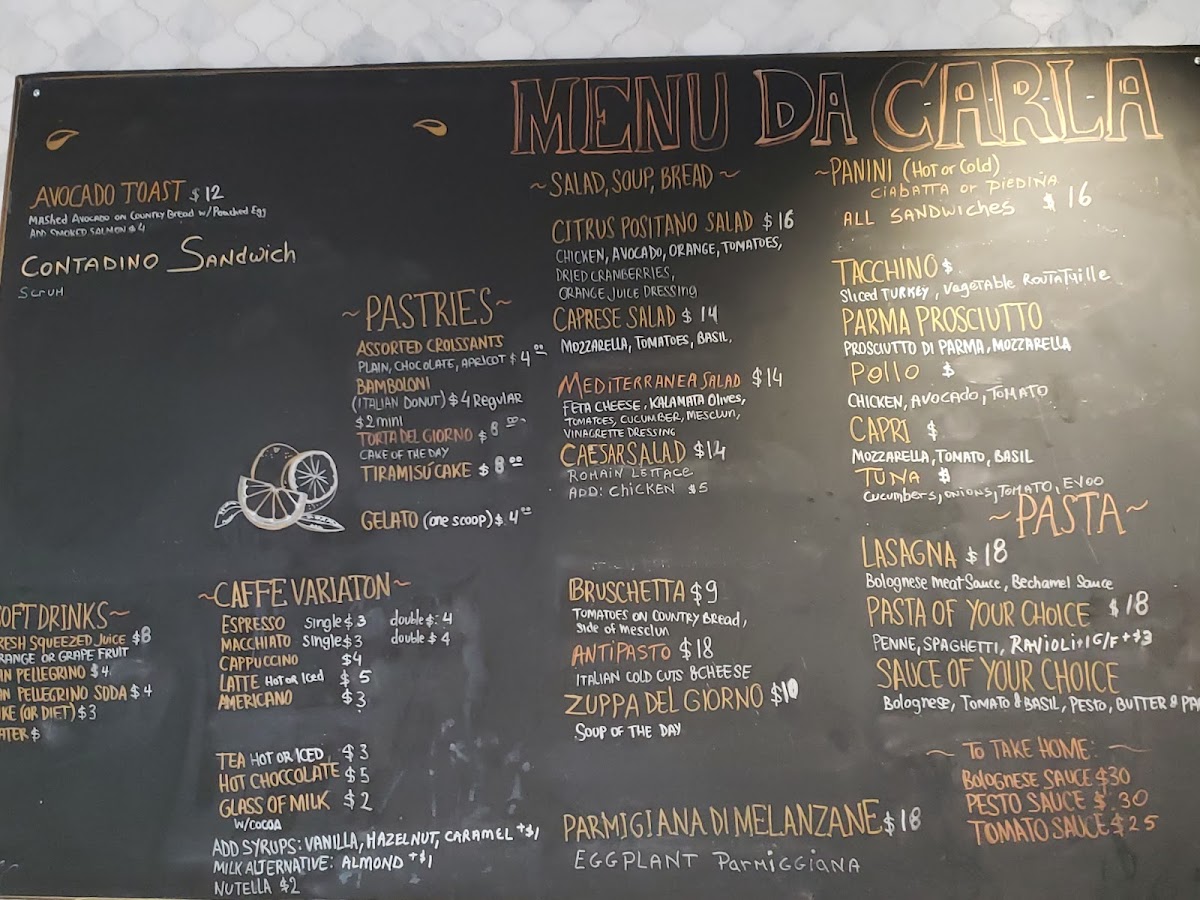 MENU DA CARLA
AVOCADO TOAST $12
MASHED AVOCADO ON COUNTRY BREAD W/ POACHED EGG
ADD SMOKED SALMON $4
CONTADINO SANDWICH
~PASTRIES~
ASSORTED CROISSANTS
PLAIN, CHOCOLATE, APRICOT $4.00
BAMBOLONI
(ITALIAN DONUT) $4 REGULAR
$2 mini
TORTA DEL GIORNO $8.00
CAKE OF THE DAY
TIRAMISÚ CAKE $8.00
GELATO (one scoop) $.4.00
SOFT DRINKS~
RESH SQUEEZED JUICE $8
RANGE OR GRAPE FRUIT
N PELLEGRINO $4
N PELLEGRINO SODA $4
KE (OR DIET) $3
ATER $
~CAFFE VARIATON~
ESPRESSO single $3 double $:4
MACCHIATO single $3 double $4
CAPPUCCINO $4
LATTE HOT OR ICED $5
AMERICANO $3
TEA HOT OR ICED $3
HOT CHOCCOLATE $5
GLASS OF MILK $2
W/COCOA
ADD SYRUPS: VANILLA, HAZELNUT, CARAMEL +$1
MILK ALTERNATIVE: ALMOND +$1
NUTELLA $2
~SALAD, SOUP, BREAD~
CITRUS POSITANO SALAD $16
CHICKEN, AVOCADO, ORANGE, TOMATOES,
DRIED CRANBERRIES,
ORANGE JUICE DRESSING
CAPRESE SALAD $14
MOZZARELLA, TOMATOES, BASIL.
MEDITERRANEA SALAD $14
FETA CHEESE, KALAMATA OLIVES,
TOMATOES, CUCUMBER, MESCLUN,
VINAGRETTE DRESSING
CAESAR SALAD $14
ROMAIN LETTACE
ADD: CHICKEN $5
BRUSCHETTA $9
TOMATOES ON COUNTRY BREAD,
side of MESCLUN
ANTIPASTO $18
ITALIAN COLD CUTS & CHEESE
ZUPPA DEL GIORNO $10
SOUP OF THE DAY
PARMIGIANA DI MELANZANE $18
EGGPLANT PARMIGGIANA
~PANINI (HOT or Cold)
CIABATTA or PIEDINA
ALL SANDWICHES $16
TACCHINO $
Sliced TURKEY, Vegetable
PARMA PROSCIUTTO
PROSCIUTTO DI PARMA, MOZZARELLA
Pollo $
CHICKEN, AVOCADO, TOMATO
CAPRI $
MOZZARELLA, TOMATO, BASIL
TUNA $
CUCUMBERS, ONIONS, TOMATO, EVOO
~PASTA~
LASAGNA $18
Bolognese meat Sauce, Bechamel Sauce
PASTA OF YOUR CHOICE $18
PENNE, SPAGHETTI, RAVIOLI+1 G/F +$3
SAUCE OF YOUR CHOICE
Bolognese, TOMATO & BASIL, PESTO, BUTTER & PA
~ TO TAKE HOME: ~
BOLOGNESE SAUCE $30
PESTO SAUCE $.30
TOMATO SAUCE $25